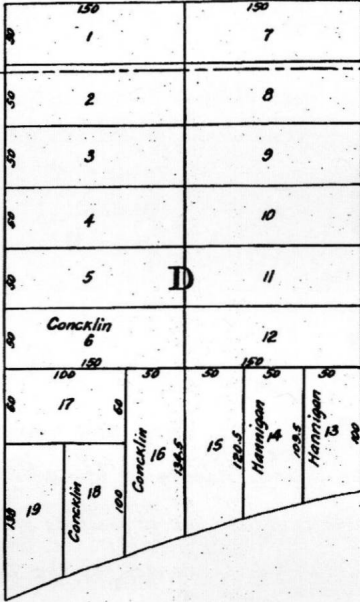 150 150
50 1 7
50 2 8
50 3 9
50 4 10
50 5 D 11
50 Concklin 6 12
150 150
100 50 50 50 50
60 17 60
Concklin 16 134.5
15 120.5
Hannigan 14 109.5
Hannigan 13 100
19
Concklin 18 100